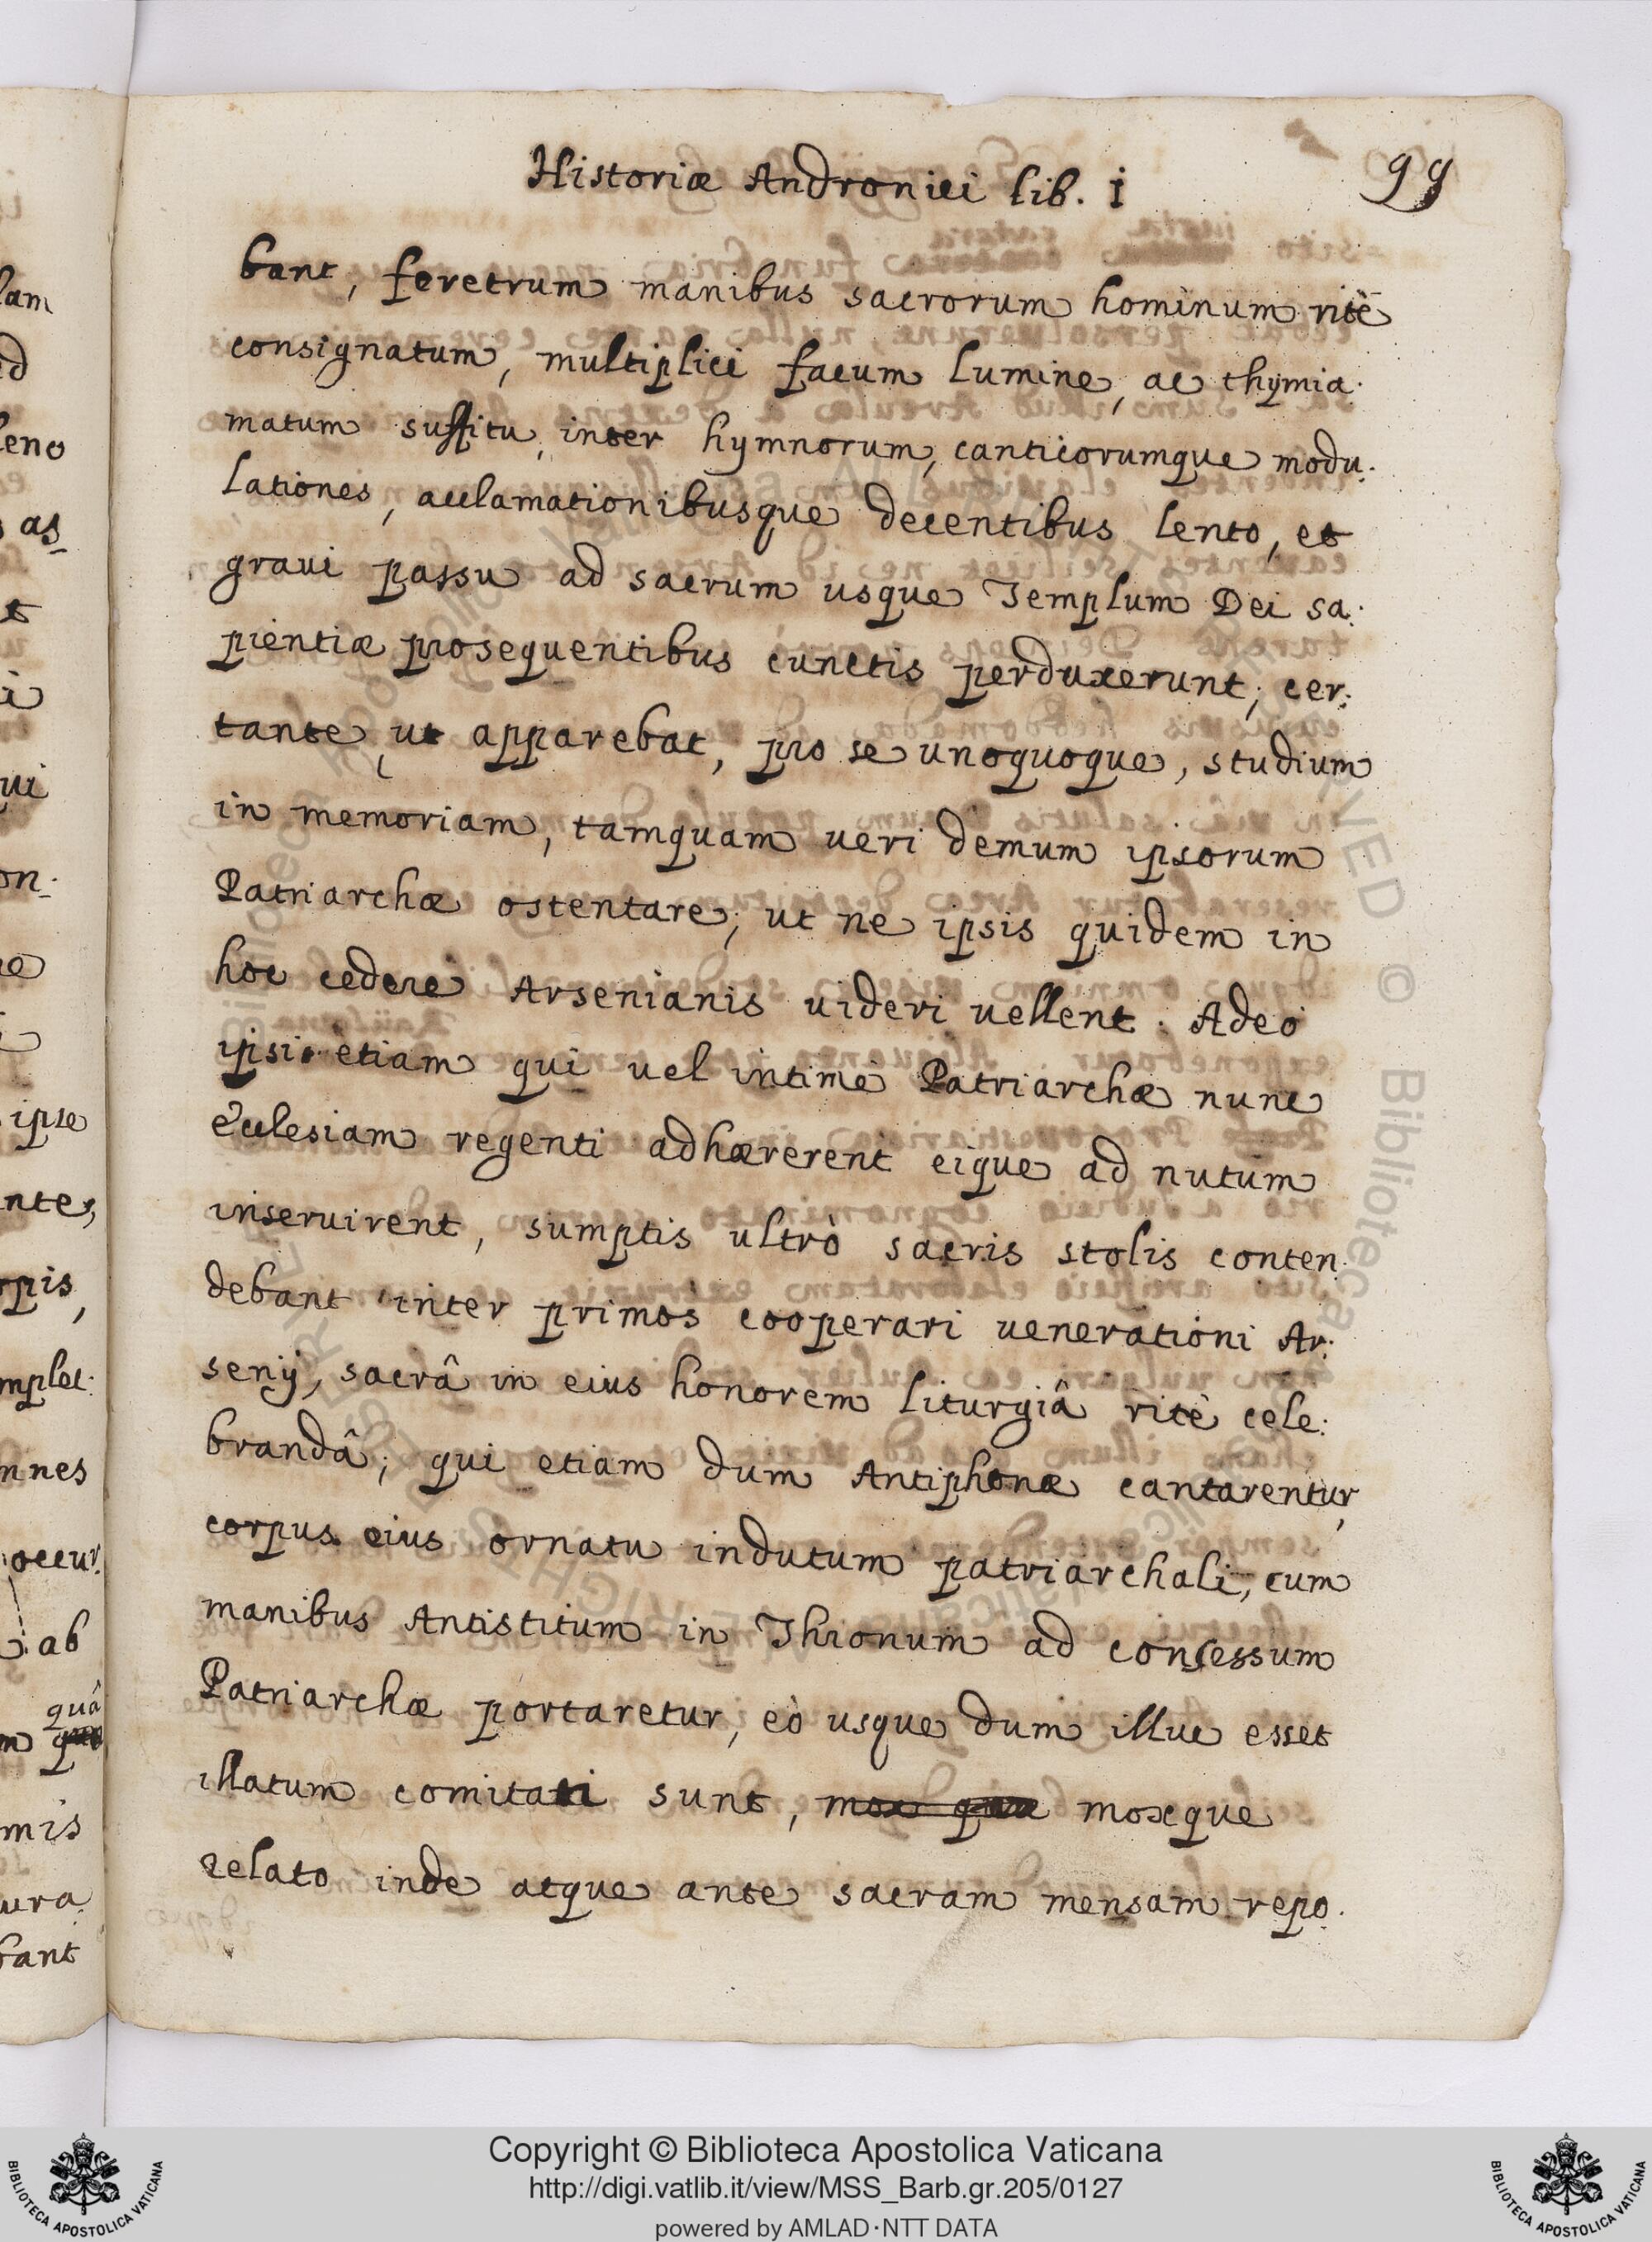 Historiæ Andronici lib. i
99
bant, feretrum manibus sacrorum hominum ritè
consignatum, multiplici facum lumine, ac thymia.
matum suffitu, inter hymnorum, canticorumque modu.
lationes, acclamationibusque decentibus lento, et
graui passu ad sacrum usque Templum Dei sa.
pientiæ prosequentibus cunctis perduxerunt; cer.
tante, ut apparebat, pro se unoquoque, studium
in memoriam, tamquam ueri demum ipsorum
Patriarchæ ostentare; ut ne ipsis quidem in
hoc cedere Arsenianis uideri uellent. Adeò
ipsi etiam qui uel intimè Patriarchæ nunc
ecclesiam regenti adhærerent eique ad nutum
inseruirent, sumptis ultrò sacris stolis conten.
debant inter primos cooperari uenerationi Ar.
senij, sacrâ in eius honorem liturgiâ ritè cele.
brandâ; qui etiam dum Antiphonæ cantarentur,
corpus eius ornatu indutum patriarchali, cum
manibus Antistitum in Thronum ad consessum
Patriarchæ portaretur, eò usque dum illuc esset
illatum comitati sunt, moxque
relato inde atque ante sacram mensam repo.
lam
leno
as
ui
on.
ipse
nte,
opis,
mplet.
nnes
occur.
ab
quâ
mis
ura.
bant
Copyright © Biblioteca Apostolica Vaticana
http://digi.vatlib.it/view/MSS_Barb.gr.205/0127
powered by AMLAD·NTT DATA
BIBLIOTECA APOSTOLICA VATICANA
BIBLIOTECA APOSTOLICA VATICANA